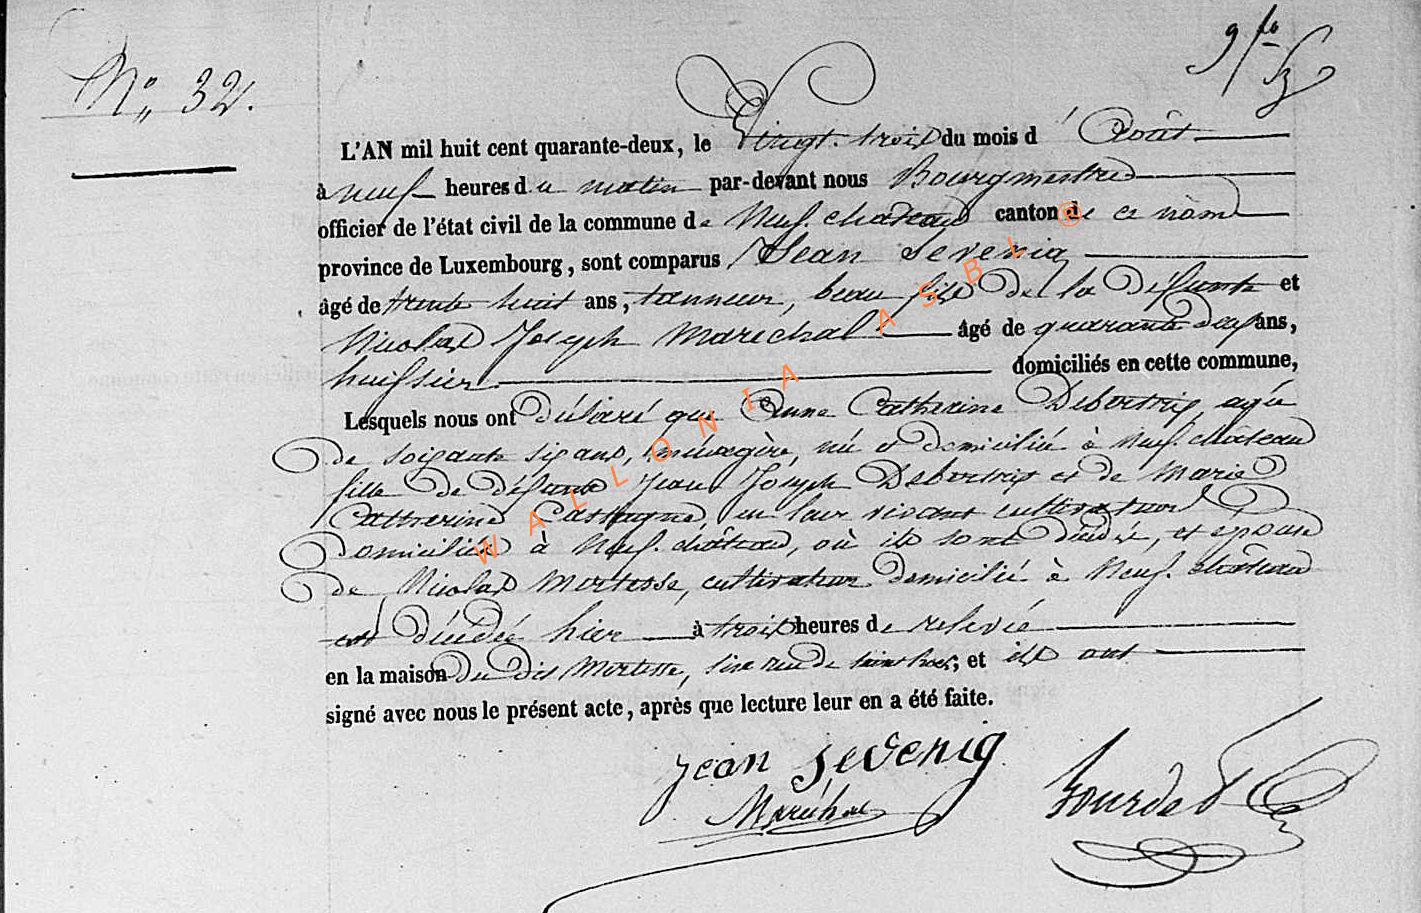 N° 32.
L'AN mil huit cent quarante-deux, le Vingt-trois du mois d'Août
à neuf heures du matin par-devant nous Bourgmestre
officier de l'état civil de la commune de Neufchateau canton de ce nom
province de Luxembourg, sont comparus Jean Sevenig
âgé de trente huit ans, tanneur, beau fils de la défunte et
Nicolas Joseph Maréchal âgé de quarante ans,
huissier domiciliés en cette commune,
Lesquels nous ont déclaré que Anne Catherine Debortrix, agée
de soixante six ans, ménagère, née et domiciliée à Neufchâteau
fille de défunts Jean Joseph Debortrix et de Marie
Catherine en leur vivant cultivateurs
domiciliés à Neufchâteau, où ils sont décédés, et épouse
de Nicolas Mortesse, cultivateur domicilié à Neufchâteau
est décédée hier à trois heures de relevée
en la maison du dit Mortesse, sise rue de Saint Roch; et ils ont
signé avec nous le présent acte, après que lecture leur en a été faite.
Jean Sevenig
Maréchal
Bourdet
WALLONIA ASBL ©